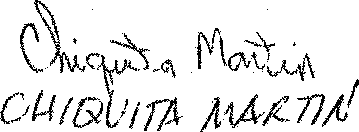 Chiquita Martin
CHIQUITA MARTIN